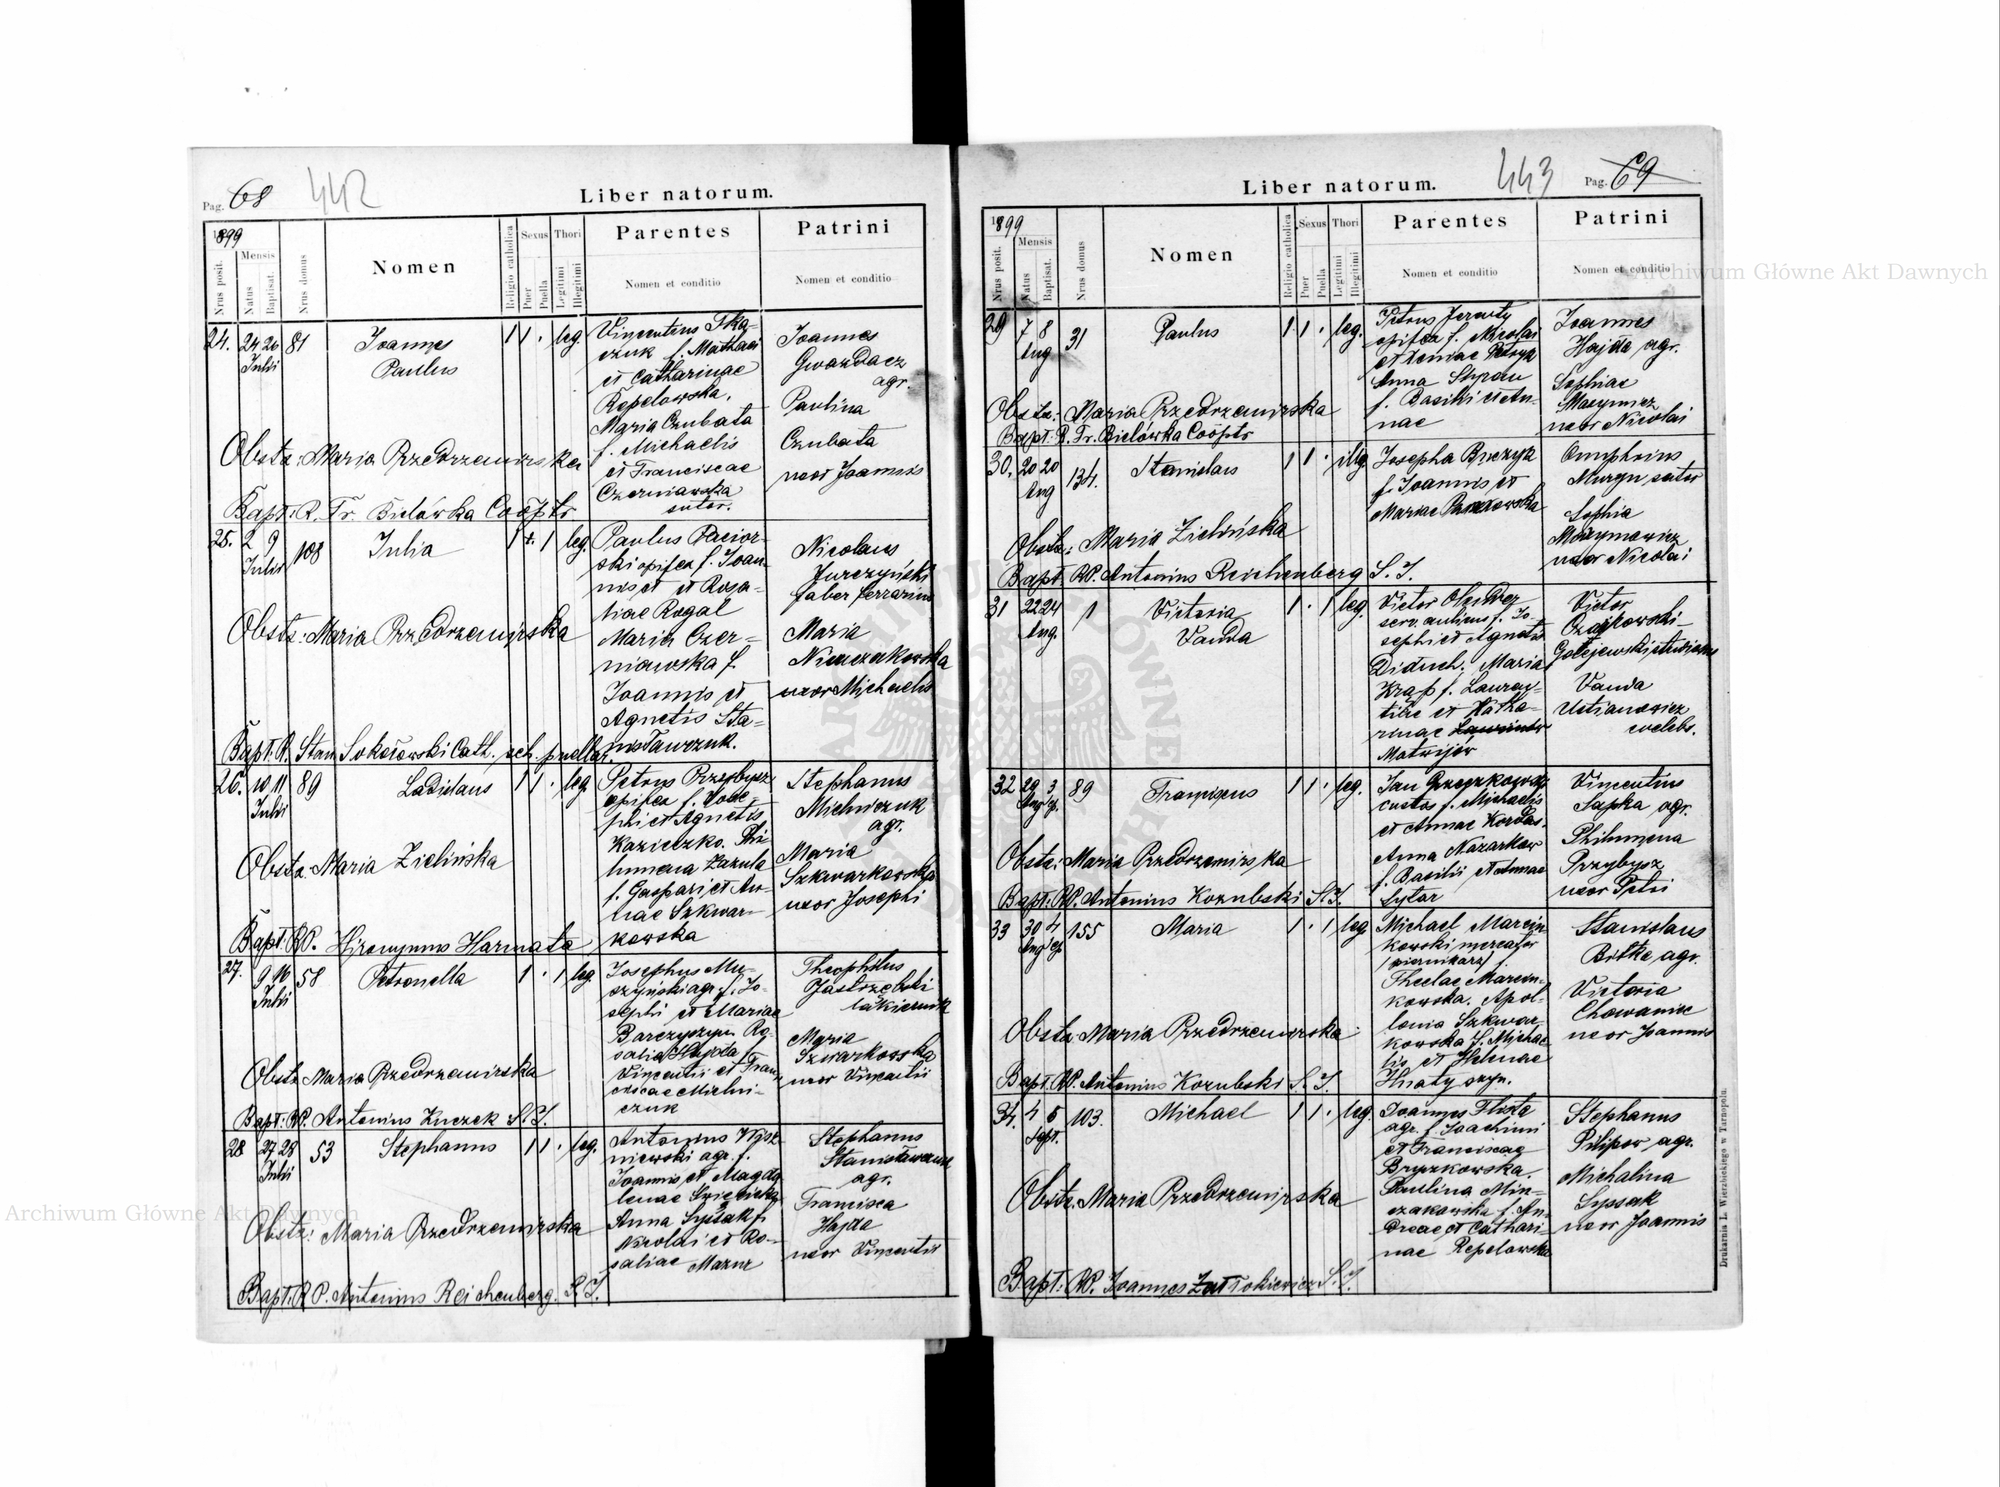 Pag. 68
442
Liber natorum.
1899
Nrus posit.
Mensis
Natus
Baptisat.
Nrus domus
Nomen
Religio catholica
Sexus
Puer
Puella
Thori
Legitimi
Illegitimi
Parentes
Nomen et conditio
Patrini
Nomen et conditio
24. 24 26 81 Joannes 1 1 . leg.
Julii
Paulus
Vincentius Tka-
czuk f. Mathaei
et Catharinae
Repelowska,
Maria Czubata
f. Michaelis
et Franciscae
Czerniawska
sutor.
Joannes
Gwazdacz
agr.
Paulina
Czubata
uxor Joannis
Obstz: Maria Przedrzemirska
Bapt: R. Fr. Bielówka Cooptr
25. 2 9 108 Julia 1 . 1 leg.
Julii
Paulus Pacior-
ski opifex f. Joan-
nis et et Rosa-
liae Rogal
Maria Czer-
niawska f.
Joannis et
Agnetis Sta-
nisławczuk.
Nicolaus
Jurczyński
faber ferrarius
Maria
Niemczakowska
uxor Michaelis
Obstz: Maria Przedrzemirska
Bapt. R. Stan. Sokołowski Cath. sch. puellar.
26. 10 11 89 Ladislaus 1 1 . leg.
Julii
Petrus Przybysz
opifex f. Jose-
phi et Agnetis
Kazieczko. Phi-
lumena Zazula
f. Gaspari et An-
nae Szkwar-
kowska
Stephanus
Michniczuk
agr.
Maria
Szkwarkowska
uxor Josephi
Obstz. Maria Zielińska
Bapt: RP. Hieronymus Harmata
27. 9 16 58 Petronella 1 . 1 leg.
Julii
Josephus Mu-
szyński agr. f. Jo-
sephi et Mariae
Barczyszyn. Ro-
salia Hajda f.
Vincentii et Fran-
ciscae Michni-
czuk
Theophilus
Jastrzebski
lakiernik
Maria
Szwarkowska
uxor Vincentii
Obstz Maria Przedrzemirska
Bapt: RP. Antonius Kuczek S.J.
28 27 28 53 Stephanus 1 1 . leg.
Julii
Antonius Wysz-
niewski agr. f.
Joannis et Magda
lenae Świcicka
Anna Syśtak f.
Nicolai et Ro-
saliae Mazur
Stephanus
Stanisławczuk
agr.
Francisca
Hajda
uxor Vincentii
Obstz: Maria Przedrzemirska
Bapt. RP. Antonius Reichenberg. S.J.
443
Pag. 69
Liber natorum.
1899
Nrus posit.
Mensis
Natus
Baptisat.
Nrus domus
Nomen
Religio catholica
Sexus
Puer
Puella
Thori
Legitimi
Illegitimi
Parentes
Nomen et conditio
Patrini
Nomen et conditio
29 7 8 31 Paulus 1 1 . leg.
Aug
Petrus
opifex f. Nicolai
Anna
f. Basilii et An-
nae
Joannes
Hajda agr.
Sophiae
uxor Nicolai
Obstz: Maria Przedrzemirska
Bapt: R. Fr. Bielówka Cooptr
30. 20 20 134. Stanislaus 1 1 . illeg
Aug
Josepha Buczyk
f. Joannis et
Mariae
Omuphrius
Muryn sutor
Sophia
Maxymowicz
uxor Nicolai
Obstz: Maria Zielińska
Bapt. RP. Antonius Reichenberg S.J.
31 22 24 1 Victoria 1 . 1 leg.
Aug.
Vanda
Victor
serv. aulicus f. Jo-
sephi et Agnetis
Diduch. Maria
Krąp f. Lauren-
tii et Katha-
rinae
Matwijów
Victor
Czajkowski-
Vanda
Ustianowicz
coelebs.
32 29 3 89 Franciscus 1 1 . leg.
Aug
Jan
custos f. Michaelis
et Annae Kordas.
Anna Nazarkow
f. Basilii et Annae
Sytar
Vincentius
Sapka agr.
Philumena
Przybysz
uxor Petri
Obstz: Maria Przedrzemirska
Bapt: RP. Antonius Kozubski S.J.
33 30 4 155 Maria 1 . 1 leg
Aug
Michael Marcin-
kowski mercator
(piernikarz) f.
Theclae Marcin-
kowska. Apol-
lonia Szkwar-
kowska f. Michae
lis et Helenae
Hnatyszyn.
Stanislaus
Bitke agr.
Victoria
Chowaniec
uxor Joannis
Obstz Maria Przedrzemirska
Bapt: RP. Antonius Kozubski S.J.
34. 4 5 103. Michael 1 1 . leg.
Sept.
Joannes Fliste
agr. f. Joachimi
et Franciscae
Bryzkowska.
Paulina Min-
czakowska f. An-
dreae et Cathari-
nae Repelowska
Stephanus
Pilipow agr.
Michalina
Syssak
uxor Joannis
Obstz. Maria Przedrzemirska
Bapt: RP. Joannes S.J.
Drukarnia L. Wierzbickiego w Tarnopolu.
Archiwum Główne Akt Dawnych
Archiwum Główne Akt Dawnych